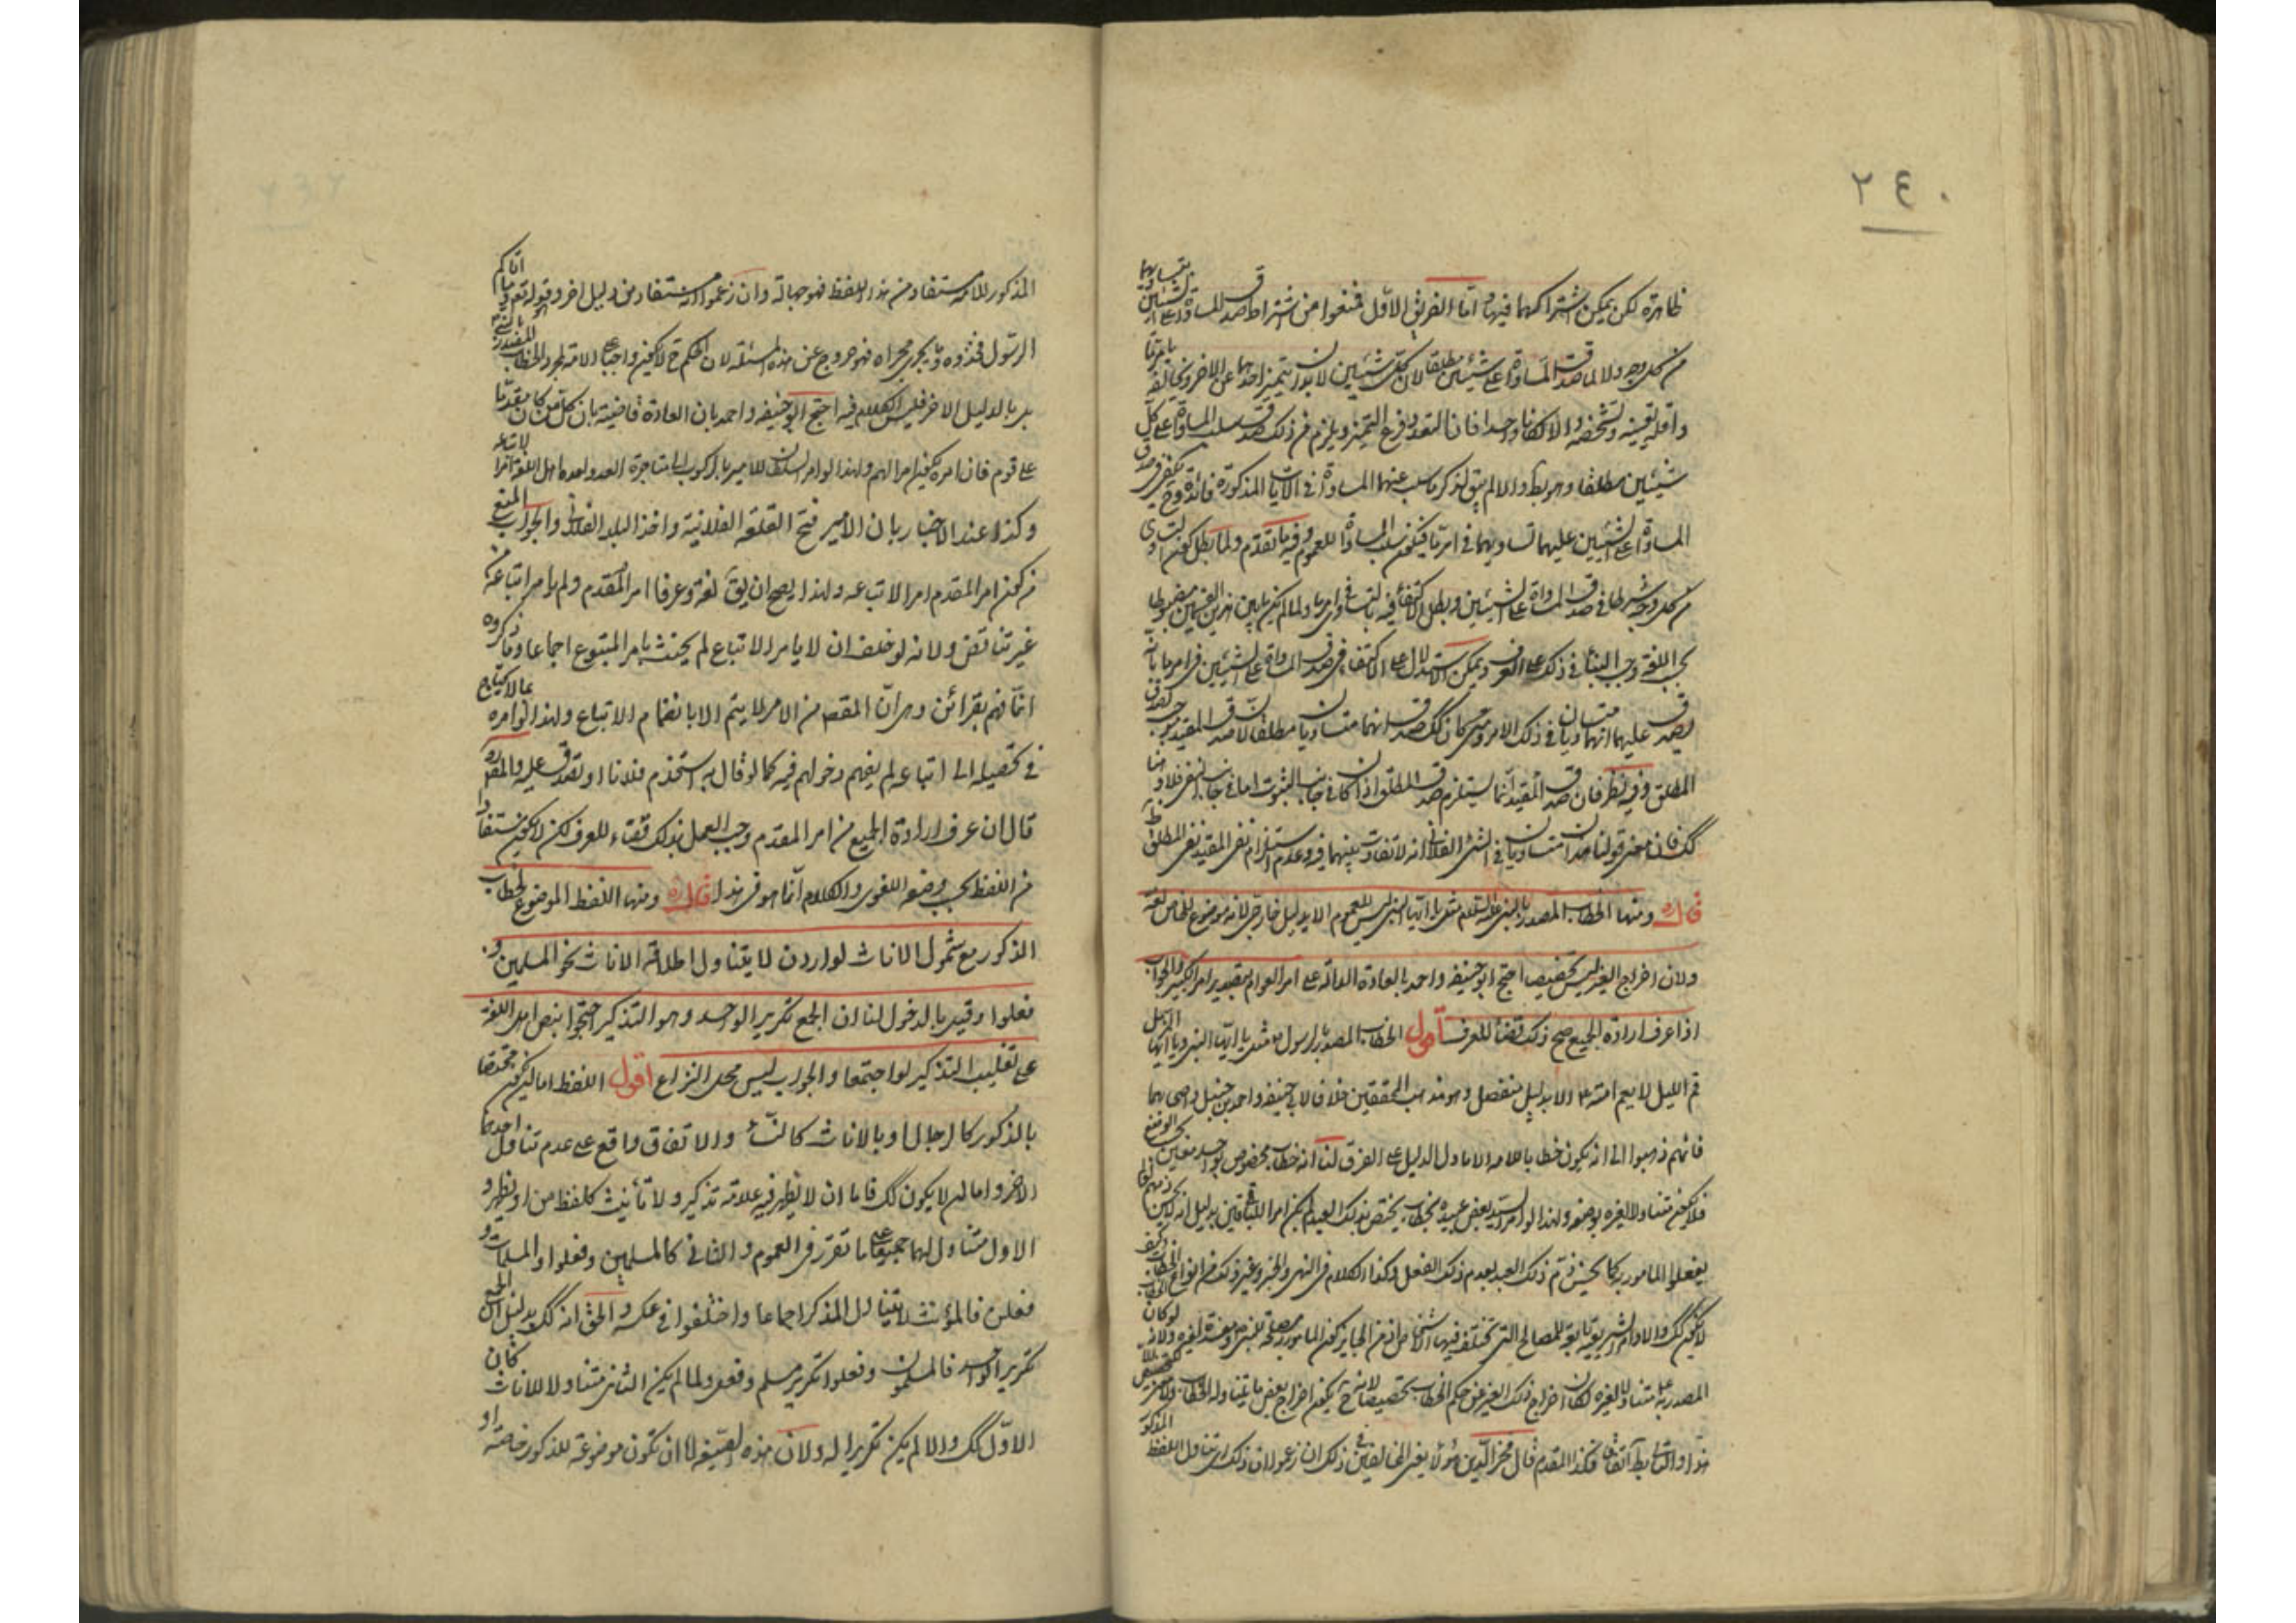 ٢٤٠
ظاهرة لكن يمكن اشتراكهما فيها و اما الفريق الاول فمنعوا من اشتراط صدق المساواة على الشيئين بتساويهما
من كل وجه ولا لما صدقت المساواة على شيئين مطلقا لان كل شيئين لا بد ان يتميز احدهما عن الاخر و يخالفه بامر ما
واقله تعينه و تشخصه والا لكانا واحدا فان التعدد فرع التميز ويلزم من ذلك صدق سلب المساواة على كل
شيئين مطلقا وهو بط والا لم يبق لذكر ما سلب عنهما المساواة في الايات المذكورة فائدة وح يكفي في صدق
المساواة على الشيئين عليهما تساويهما في امر ما فيكون سلب المساواة للعموم وفيه ما تقدم ولما بطل كون التساوي
من كل وجه شرطا في صدق المساواة على الشيئين وبطل الاكتفاء فيه بالتساوي في امر ما ولما لم يكن ما بين هذين القسمين مضبوطا
بحسب اللغة وجب البناء في ذلك على العرف ويمكن الاستدلال على الاكتفاء في صدق المساواة على الشيئين في امر ما بانه
يصدق عليهما انهما متساويان في ذلك الامر ومتى كان كك صدق انهما متساويان مطلقا لان صدق المقيد يوجب صدق
المطلق وفيه نظر فان صدق المقيد انما يستلزم صدق المطلق اذا كان في جانب الثبوت اما في جانب النفي فلا و هنا
كك فان معنى قولنا هذان متساويان في الشئ الفلاني انه لا تفاوت بينهما فيه وعدم استلزام نفي المقيد نفي المطلق ظ
قال ره ومنها الخطاب المصدر بالنبي عليه السلم مثل يا ايها النبي ليس للعموم الا بدليل خارجي لانه موضوع للخاص لغة
ولان اخراج الغير ليس تخصيصا احتج ابو حنيفه واحمد بالعادة الدالة على امر العوام بتقدير امر الكبير والجواب
اذا عرف ارادة الجميع صح ذلك قضاء للعرف اقول الخطاب المصدر بالرسول ص مثل يا ايها النبي ويا ايها المزمل
قم الليل لا يعم امته الا بدليل منفصل وهو مذهب المحققين خلافا لابي حنيفه واحمد بن حنبل واصحابهما
فانهم ذهبوا الى انه يكون خطابا للامة الا ما دل الدليل على الفرق لنا انه خطاب مخصوص بواحد معين بحسب الوضع
فلا يكون متناولا لغيره بوضعه ولهذا لو امر السيد بعض عبيده بخطاب يختص بذلك العبد لم يكن امرا للباقين بدليل انه لا يحسن ذمهم لو لم
يفعلوا المامور به كما يحسن ذم ذلك العبد بعدم ذلك الفعل وكذا الكلام في النهي والخبر وغير ذلك من انواع الخطاب وكيف
لا يكون كك والاوامر الشرعية تابعة للمصالح التي تختلف فيها الاشخاص اذ من الجايز كون المامور به مصلحة للنبي ص ومفسدة لغيره ولانه لو كان
المصدر به ع متناولا لغيره لكان اخراج ذلك الغير عن حكم الخطاب تخصيصا لانه ح يكون اخراج بعض ما يتناوله الخطاب
هذا والتالي بط اتفاقا فكذا المقدم قال فخر الدين هؤلاء يعني المخالفين في ذلك ان زعموا ان ذلك اي تناول اللفظ المذكور
المذكور للامة مستفاد من هذا اللفظ فهو جهالة وان زعموا انه مستفاد من دليل اخر وهو قوله تعم وما اتاكم
الرسول فخذوه وما يجري مجراه فهو خروج عن هذه المسئلة لان الحكم ح لا يكون واجبا على الامة بمجرد الخطاب المصدر بالنبي
بل بالدليل الاخر فليس الكلام فيه احتج ابو حنيفه واحمد بان العادة قاضية بان كل من كان مقدما
على قوم فان امره يكون امرا لهم ولهذا لو امر السلطان للامير بالركوب الى مناجزة العدو لعده اهل اللغة امرا لاتباعه
وكذا عند الاخبار بان الامير فتح القلعة الفلانية واخذ البلد الفلاني والجواب المنع
من كون امر المقدم امرا لاتباعه ولهذا يصح ان يق لغة وعرفا امر المقدم ولم يامر اتباعه من
غير تناقض ولانه لو حلف ان لا يامر الاتباع لم يحنث بامر المتبوع اجماعا وما ذكروه
انما فهم بقرائن وهي ان المقصود من الامر لا يتم الا بانضمام الاتباع ولهذا لو امره بما لا يحتاج
في تحصيله الى اتباعه لم يفهم دخولهم فيه كما لو قال له استخدم فلانا او تصدق عليه والمص ره
قال ان عرف ارادة الجميع من امر المقدم وجب العمل بذلك قضاء للعرف لكن لا يكون مستفادا
من اللفظ بحسب وضعه اللغوي والكلام انما هو في هذا قال ره ومنها اللفظ الموضوع لخطاب
الذكور مع شمول الاناث لو اردن لا يتناول اطلاقه الاناث نحو المسلمين و
فعلوا وقيل بالدخول لنا ان الجمع تكرير الواحد وهو التذكير احتجوا بنص اهل اللغة
على تغليب التذكير لو اجتمعا والجواب ليس محل النزاع اقول اللفظ اما ان يكون مختصا
بالذكور كالرجال او بالاناث كالنساء والاتفاق واقع على عدم تناول احدهما
الاخر و اما ان لا يكون كك فاما ان لا يظهر فيه علامة تذكير ولا تأنيث كلفظ من او يظهر و
الاول متناول لهما جميعا على ما تقرر في العموم والثاني كالمسلمين وفعلوا والمسلمات و
فعلن فالمؤنث لا يتناول المذكر اجماعا واختلفوا في عكسه والحق انه كك بدليل ان الجمع
تكرير الواحد فالمسلمون وفعلوا تكرير مسلم وفعل ولما لم يكن الثاني متناولا للاناث كان
الاول كك والا لم يكن تكريرا له ولان هذه الصيغة اما ان تكون موضوعة للذكور خاصة او